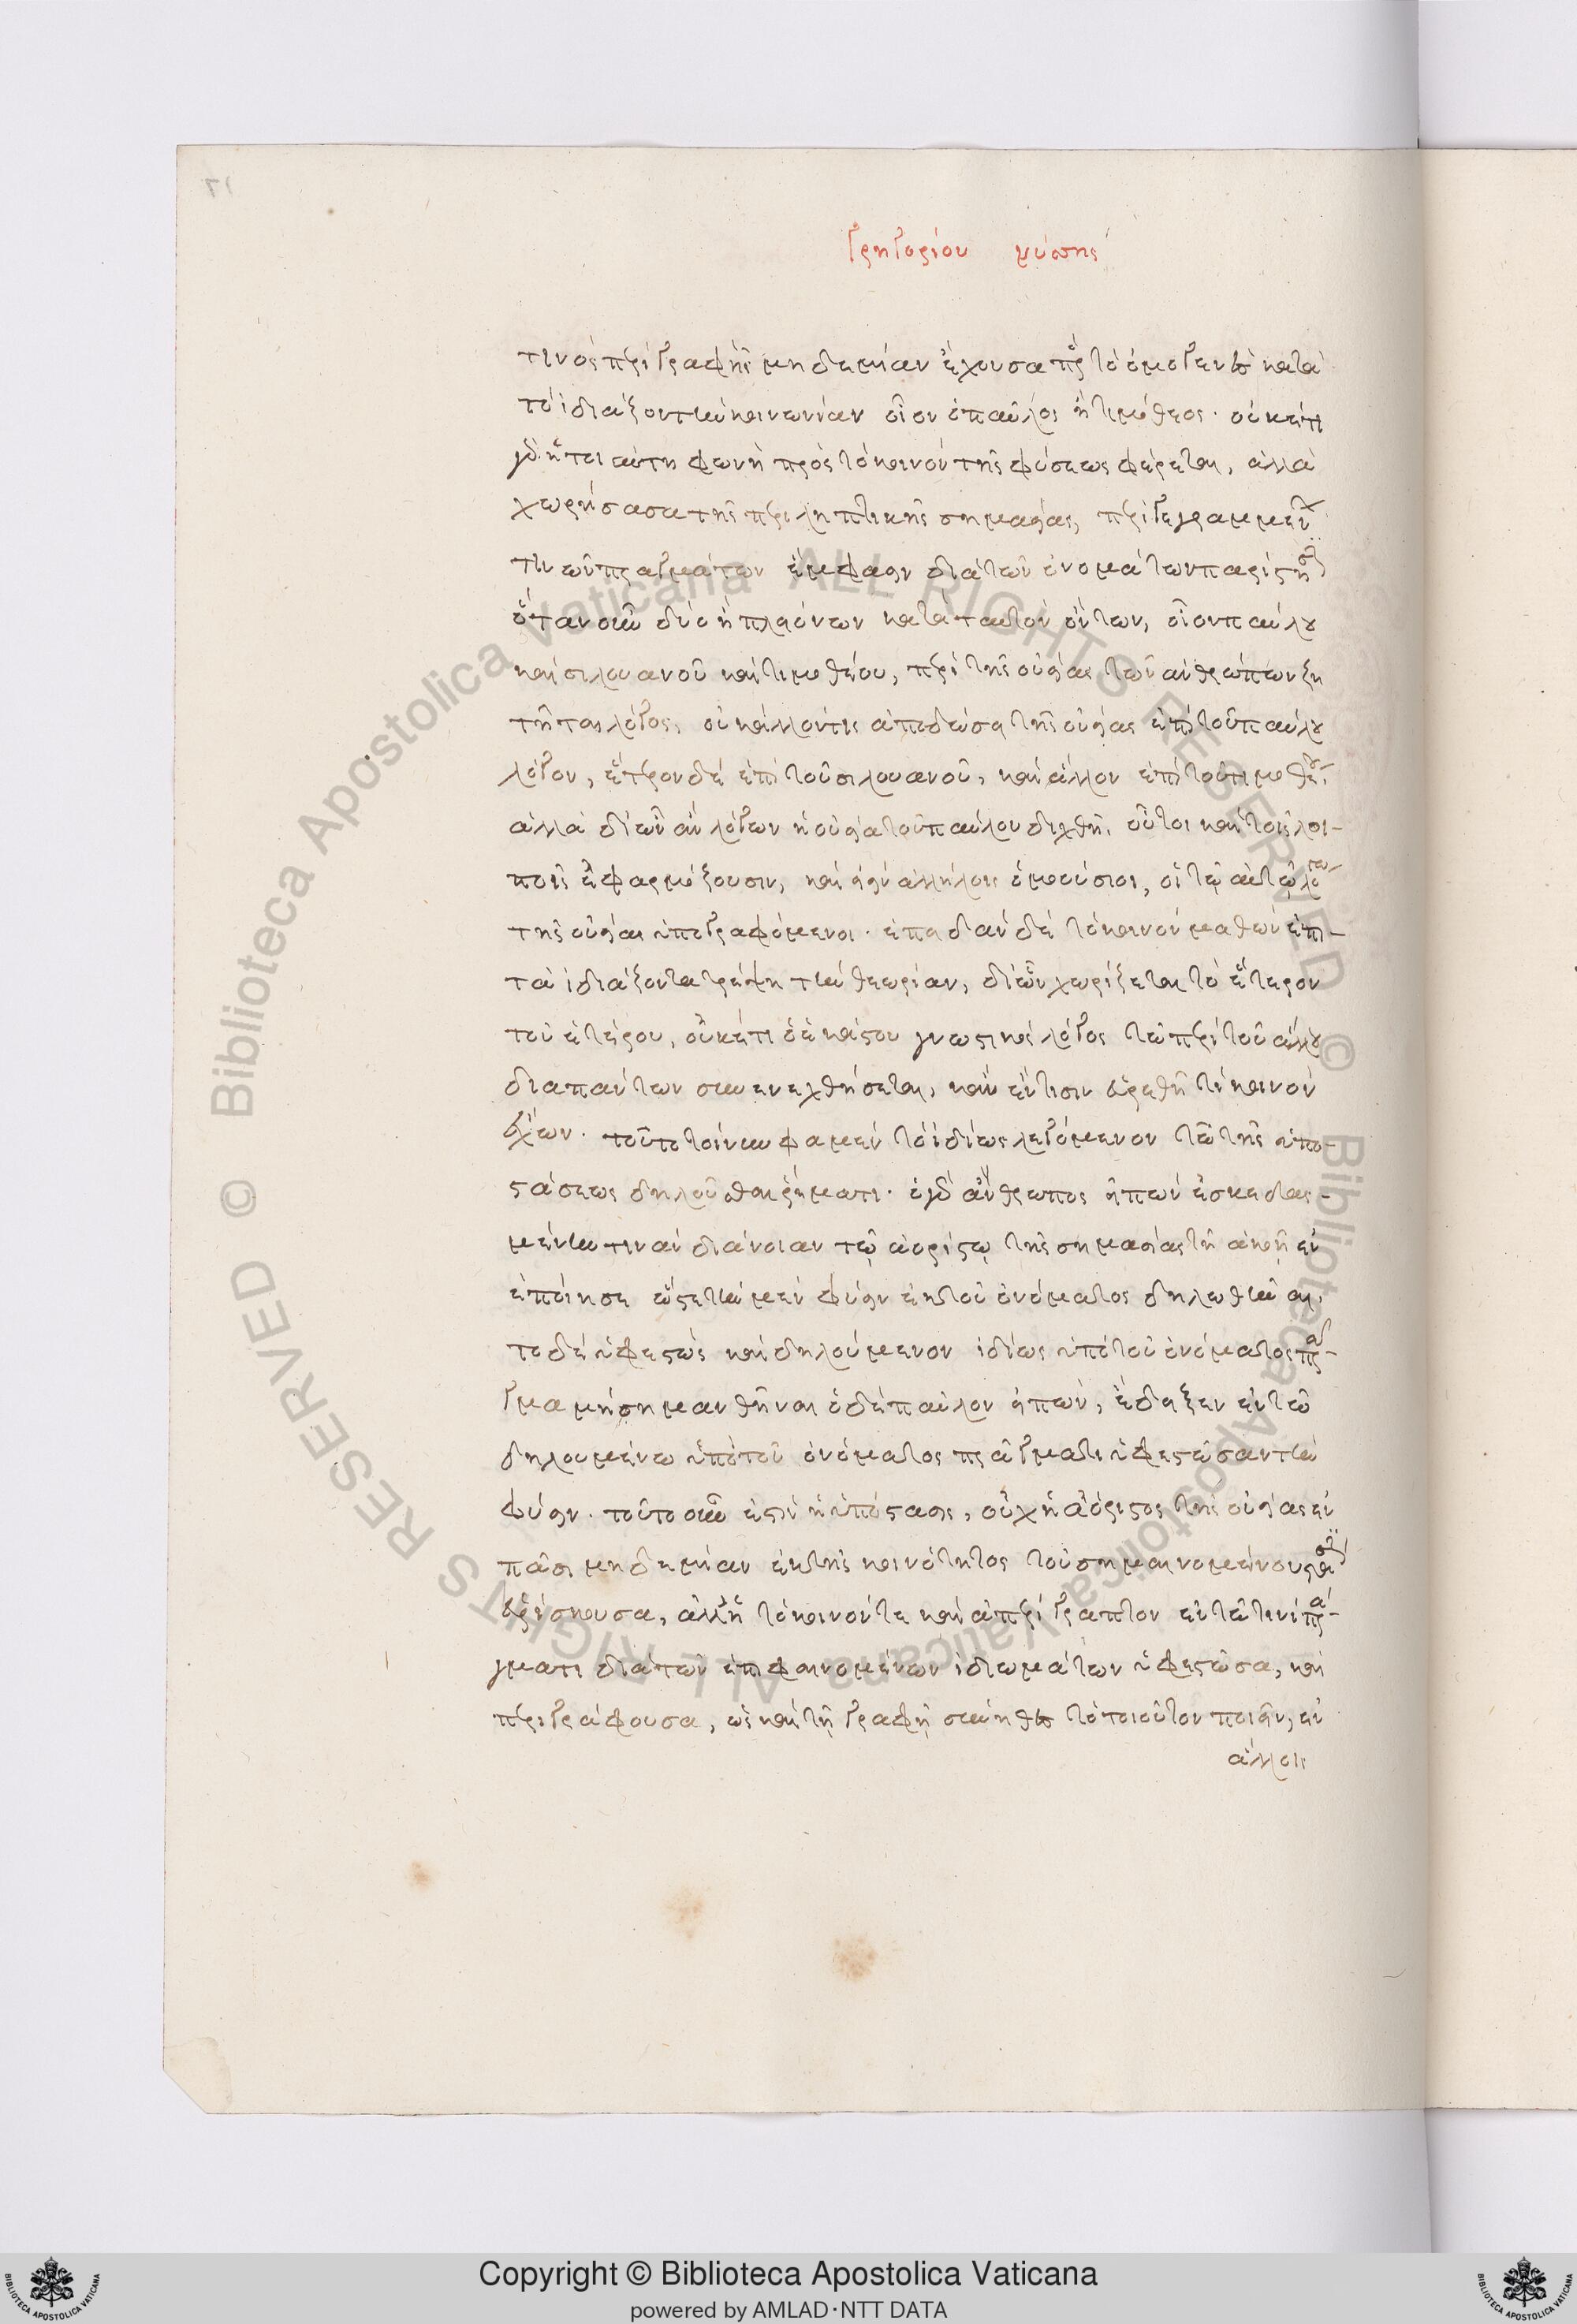 Γρηγορίου νύσης
τινὸς περιγραφῆς μηδεμίαν ἔχουσα πρὸς τὸ ὁμογενὲς κατὰ
τὸ ἰδιάζον τὴν κοινωνίαν οἷον ὁ παῦλος ἢ τιμόθεος. οὐκέτι
γὰρ ἡ τοιαύτη φωνὴ πρὸς τὸ κοινὸν τῆς φύσεως φέρεται, ἀλλὰ
χωρήσασα τῆς περιληπτικῆς σημασίας, περιγεγραμμένων
τινῶν πραγμάτων ἔμφασιν διὰ τῶν ὀνομάτων παρίστησιν
ὅταν οὖν δύο ἢ πλειόνων κατὰ ταυτὸν ὄντων, οἷον παύλου
καὶ σιλουανοῦ καὶ τιμοθέου, περὶ τῆς οὐσίας τῶν ἀνθρώπων ζη
τῆται λόγος, οὐκ ἄλλον τις ἀποδώσει τῆς οὐσίας ἐπὶ τοῦ παύλου
λόγον, ἕτερον δὲ ἐπὶ τοῦ σιλουανοῦ, καὶ ἄλλον ἐπὶ τοῦ τιμοθέου,
ἀλλὰ δι' ὧν ἂν λόγων ἡ οὐσία τοῦ παύλου διχθῆ, οὗτοι καὶ τοῖς λοι-
ποῖς ἐφαρμόζουσιν, καὶ εἰσὶν ἀλλήλοις ὁμοούσιοι, οἱ τῷ αὐτῷ λόγω
τῆς οὐσίας ὑπογραφόμενοι. ἐπειδὰν δὲ τὸ κοινὸν μαθὼν ἐπι-
τὰ ἰδιάζοντα τρέψη τὴν θεωρίαν, δι' ὧν χωρίζεται τὸ ἕτερον
τοῦ ἑτέρου, οὐκέτι ὁ ἑκάστου γνωστικὸς λόγος τῶ περὶ τοῦ ἄλλου
διαπάντων συνενεχθήσεται, κἂν ἔν τισιν εὑρεθῆ τὶ κοινὸν
ἔχων. τοῦτο τοίνυν φαμὲν τὸ ἰδίως λεγόμενον τῶ τῆς ὑπο-
στάσεως δηλοῦσθαι ῥήματι. ὁ γὰρ ἄνθρωπος εἰπὼν ἐσκεδας-
μένην τινὰν διάνοιαν τῷ ἀορίστῳ τῆς σημασίας τῆ ἀκοῇ ἐν
ἐποίησε ὥστε τὴν μὲν φύσιν ἐκ τοῦ ὀνόματος δηλωθῆναι,
τὸ δὲ ὑφεστὼς καὶ δηλούμενον ἰδίως ὑπὸ τοῦ ὀνόματος πρᾶ-
γμα μὴ σημανθῆναι ὁ δὲ παῦλον εἰπὼν, ἔδειξεν ἐν τῶ
δηλουμένω ὑπὸ τοῦ ὀνόματος πράγματι ὑφεστῶσαν τὴν
φύσιν. τοῦτο οὖν ἐστιν ἡ ὑπόστασις, οὐχ ἡ ἀόριστος τῆς οὐσίας ἐν
πᾶσι μηδεμίαν ἐκ τῆς κοινότητος τοῦ σημαινομένου στάσιν
εὑρίσκουσα, ἀλλ' ἢ τὸ κοινόν τε καὶ ἀπερίγραπτον ἐν τῶ τινὶ πρά-
γματι διὰ τῶν ἐπιφαινομένων ἰδιωμάτων ὑφεστῶσα, καὶ
περιγράφουσα, ὡς καὶ τῇ γραφῇ σύνηθες τὸ τοιοῦτον ποιεῖν, ἐν
ἄλλοις
Copyright © Biblioteca Apostolica Vaticana
powered by AMLAD·NTT DATA